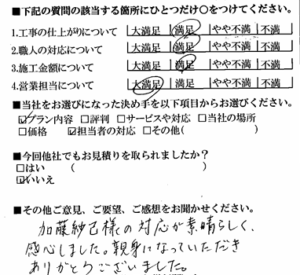 ■下記の質問の該当する箇所にひとつだけ○をつけてください。
1.工事の仕上がりについて 大満足 満足 やや不満 不満
2.職人の対応について 大満足 満足 やや不満 不満
3.施工金額について 大満足 満足 やや不満 不満
4.営業担当について 大満足 満足 やや不満 不満
■当社をお選びになった決め手を以下項目からお選びください。
☑プラン内容 □評判 □サービスや対応 □当社の場所
□価格 ☑担当者の対応 □その他( )
■今回他社でもお見積りを取られましたか?
□はい ( )
☑いいえ
■その他ご意見、ご要望、ご感想をお聞かせください。
加藤紗己様の対応が素晴らしく、
感心しました。親身になっていただき
ありがとうございました。